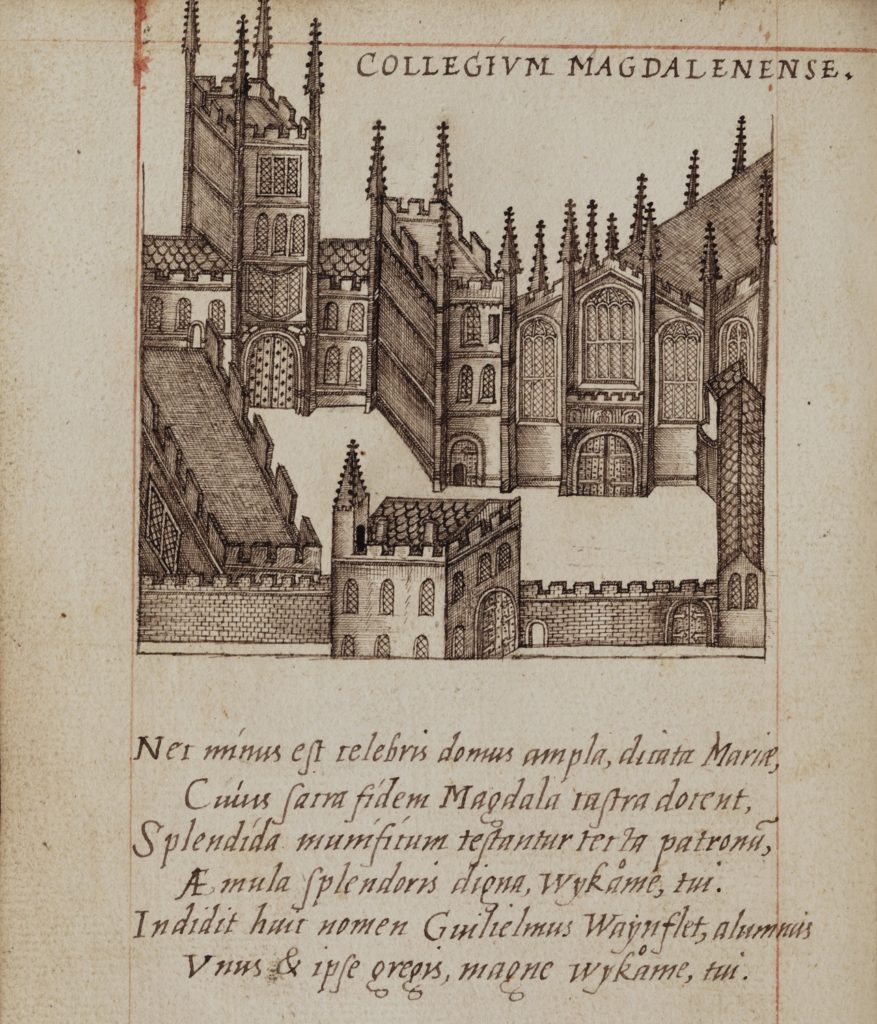 COLLEGIVM MAGDALENENSE.
Nec minus est celebris domus ampla, dicata Mariæ,
Cuius sacra fidem Magdala castra docent,
Splendida munificum testantur tecta patronū,
Æmula splendoris digna, Wykåme, tui.
Indidit huic nomen Guilielmus Waynflet, alumnus
Vnus & ipse gregis, magne wykåme, tui.